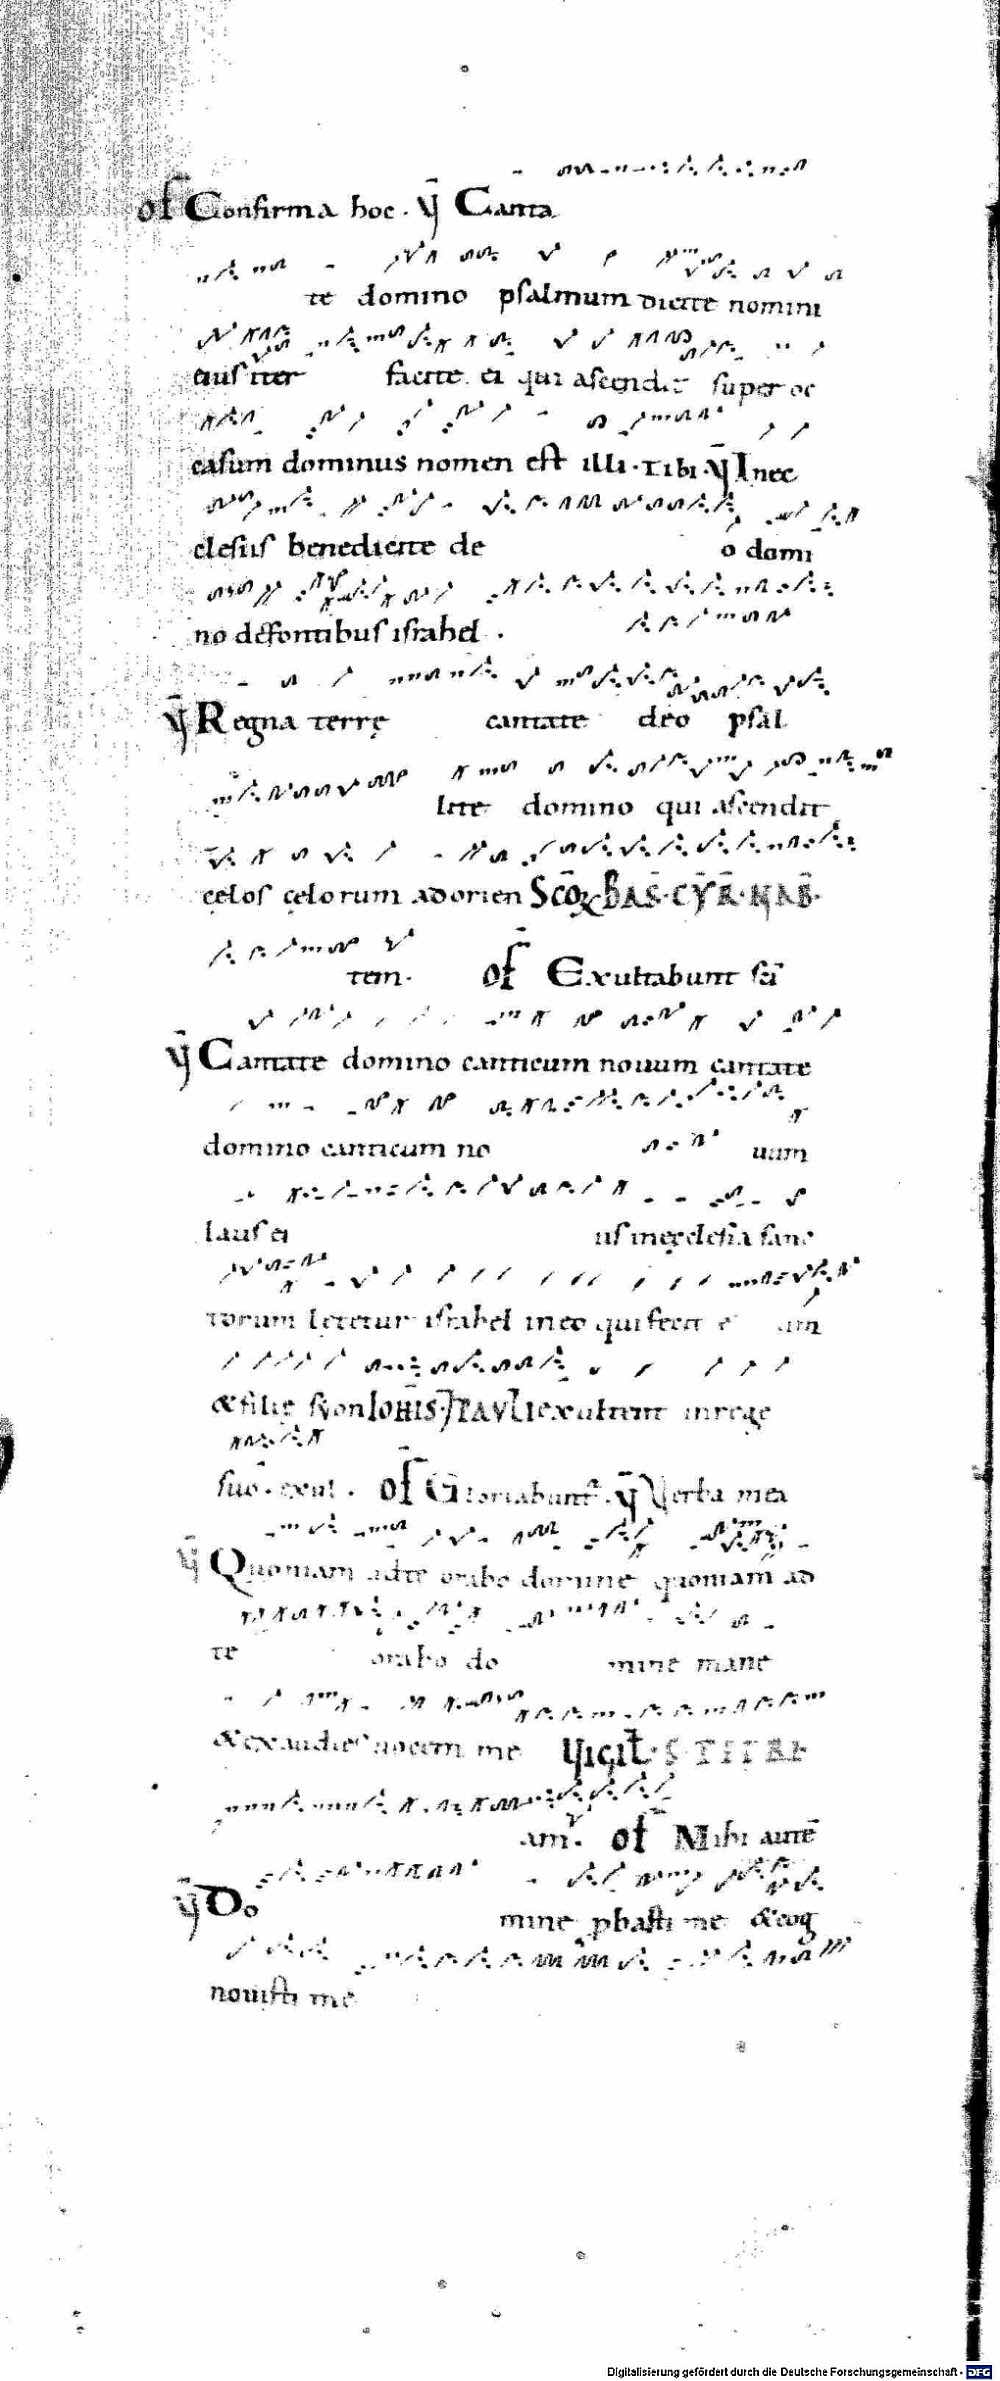 of Confirma hoc . ℣ Canta
te domino psalmum dicite nomini
eius iter facite. ei qui ascendit super oc
casum dominus nomen est illi . Tibi ℣ In ec
clesiis benedicite de o domi
no defontibus israhel .
℣ Regna terrę cantate deo psal
lite domino qui ascendit
cęlos cęlorum adorien SCŌꝜ BAS̄ . CYR̄ . NAB̄ .
tem . of Exultabunt sc̄i
℣ Cantate domino canticum nouum cantate
domino canticum no uum
laus ei us inęcclesia sanc
torum lętetur israhel ineo qui fecit e um
& filię syon IOHIS . PAVLI exultent inrege
suo . exul . of Gloriabunt . ℣ Verba mea
℣ Quoniam adte orabo domine quoniam ad
te orabo do mine mane
& exaudies uocem me VIGIL . S PETRI
am . of Mihi autē
℣ Do mine pbasti me & cog
nouisti me
Digitalisierung gefördert durch die Deutsche Forschungsgemeinschaft - DFG